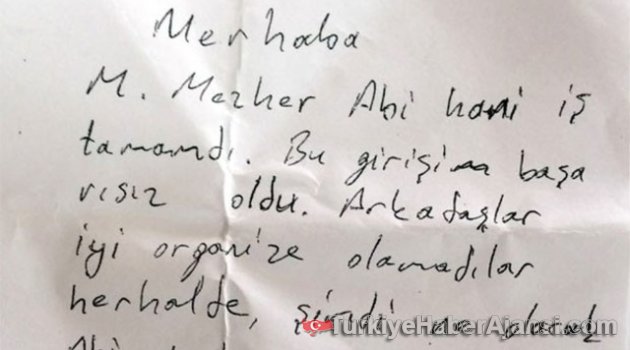 Merhaba
M. Mezher Abi hani iş
tamamdı. Bu girişim başa
rısız oldu. Arkadaşlar
iyi organize olamadılar
herhalde, şimdi ne olacak
TürkiyeHaberAjansi.com
Abi